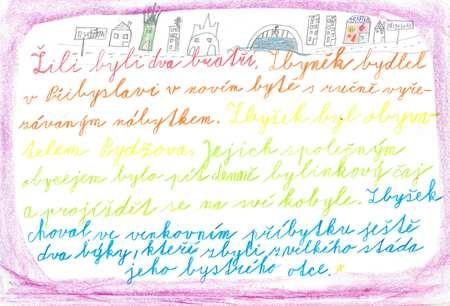 Žili byli dva bratři. Zbyněk bydlel
v Přibyslavi v novím bytě s ručně vyře-
závaným nábytkem. Zbyšek byl obyva-
telem Bydžova. Jejich společným
obyčejem bylo pít denně bylinkový čaj
a projíždět se na své kobyle. Zbyšek
choval ve venkovním příbytku ještě
dva býky, kteří zbyli z velkého stáda
jeho bystrého otce.